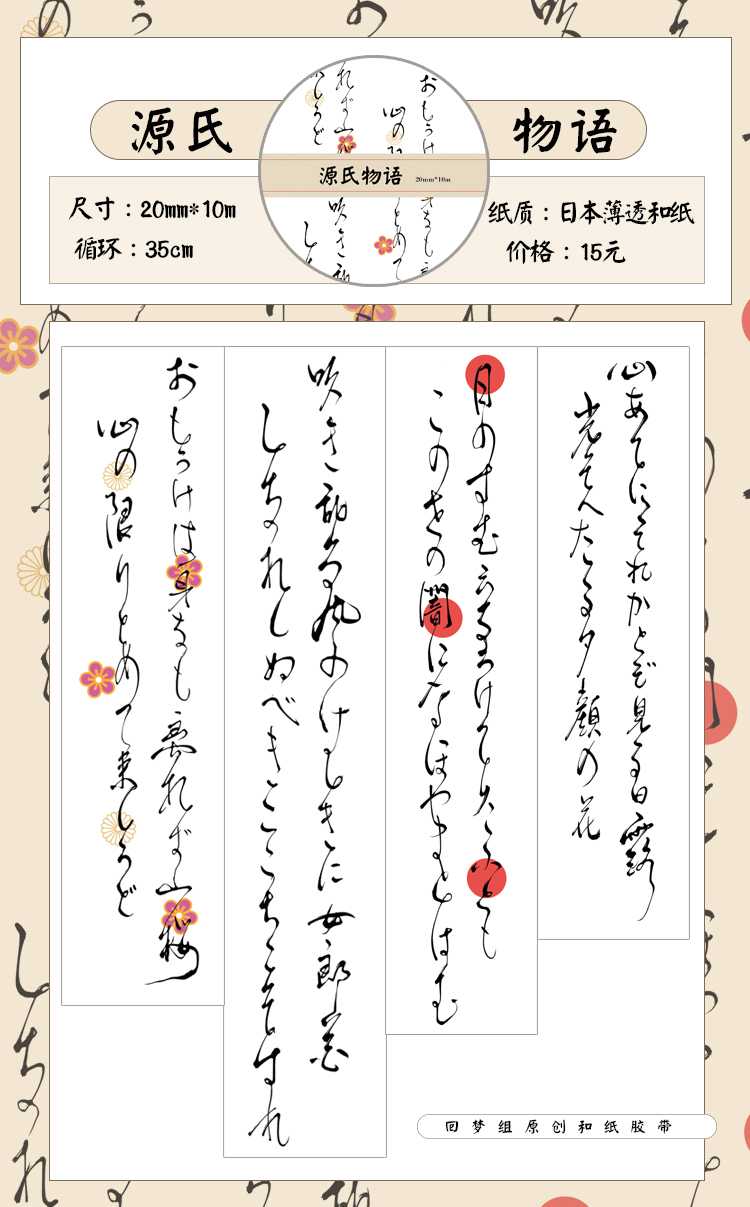 源氏物语
源氏物语 20mm*10m
尺寸：20mm*10m
循环：35cm
纸质：日本薄透和纸
价格：15元
心あてにそれかとぞ見る白露の
光そへたる夕顔の花
月のすむ雲ゐをかけてしたふとも
このよの闇になほやまどはむ
吹き乱る風のけしきに女郎花
しをれしぬべきここちこそすれ
おもかげは身をも離れず山桜
心の限りとめて来しかど
回梦组原创和纸胶带